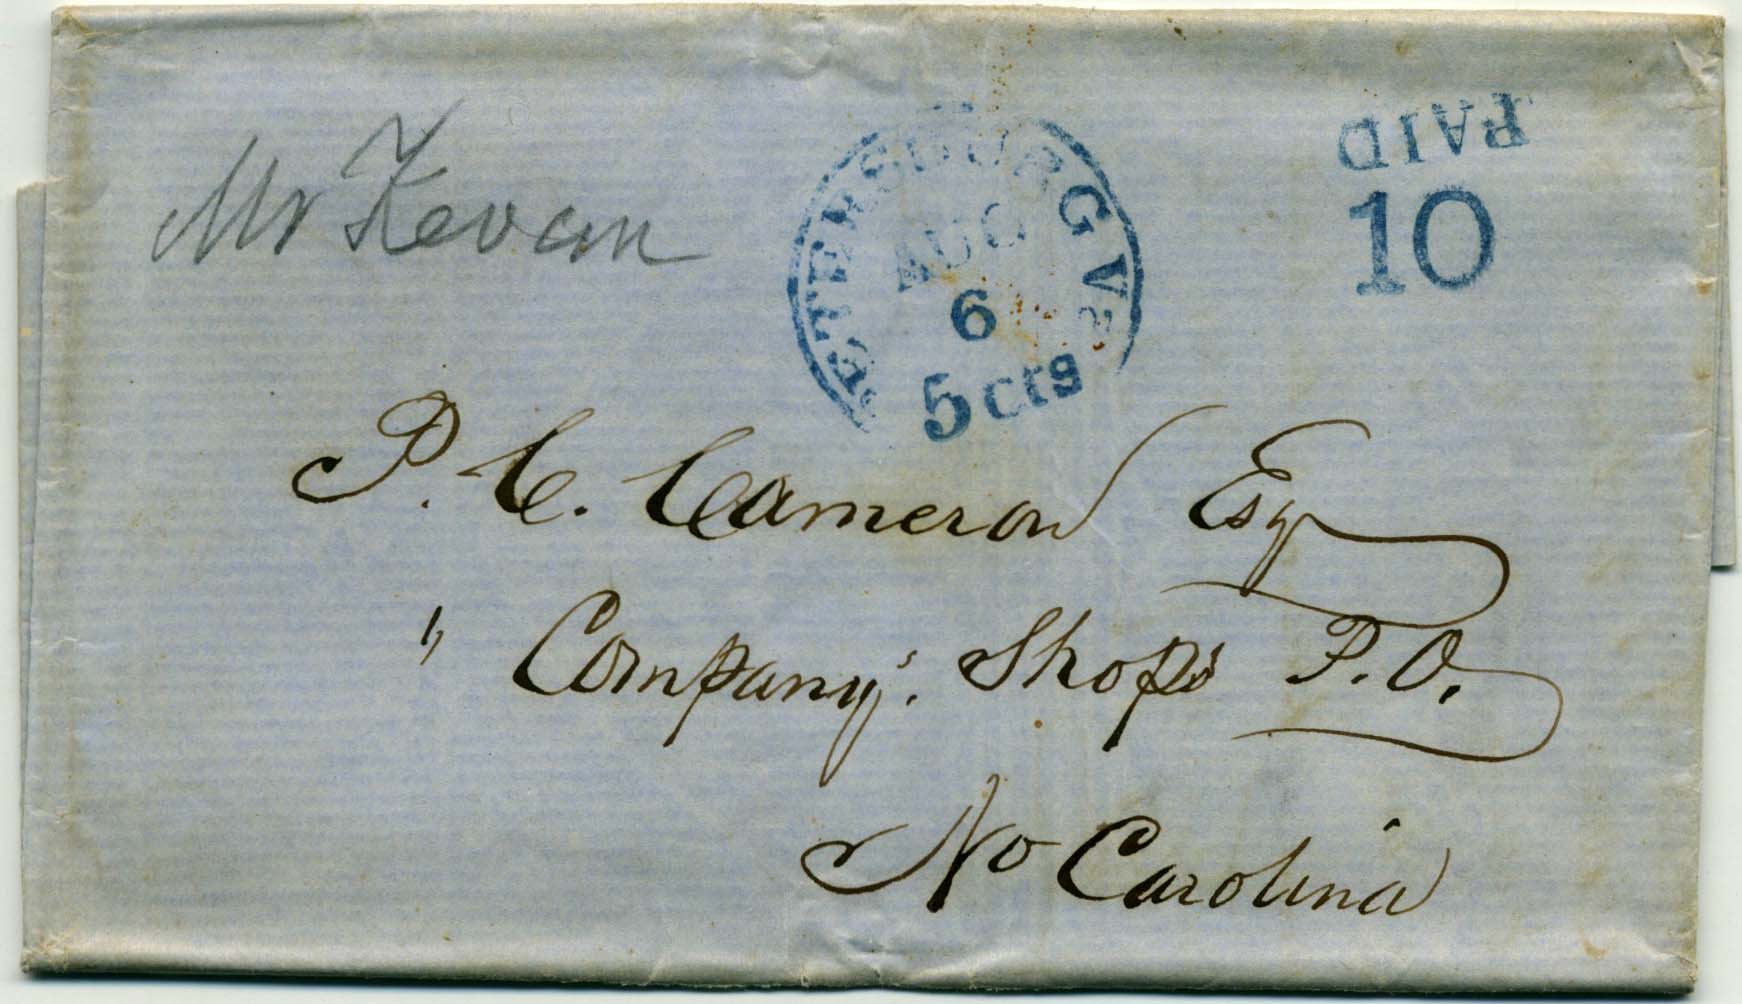 Mr Kevan
PETERSBURG Va.
AUG
6
5 cts
PAID
10
P. C. Cameron Esq
" Company's Shops P.O.
No Carolina